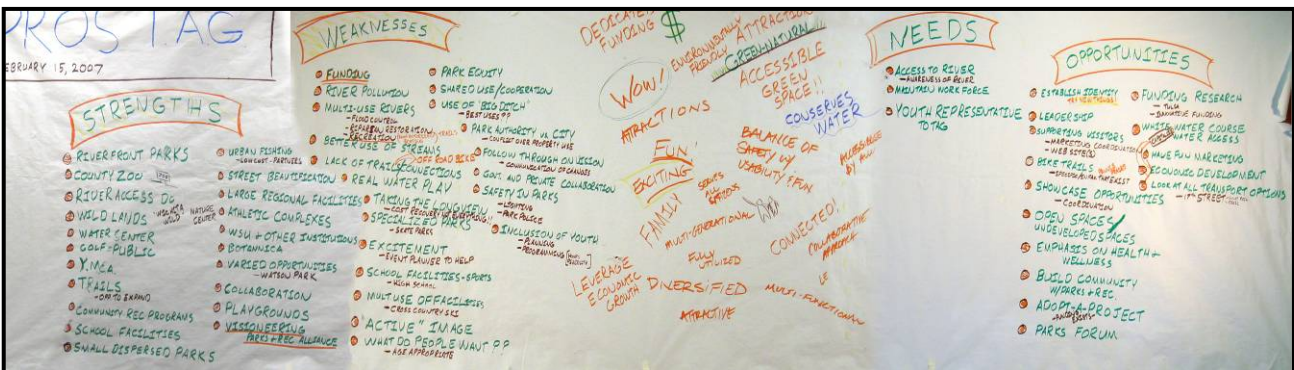 PROS TAG
FEBRUARY 15, 2007
STRENGTHS
RIVERFRONT PARKS
COUNTY ZOO
RIVER ACCESS
WILD LANDS
NATURE CENTER
WATER CENTER
GOLF-PUBLIC
Y.M.C.A.
TRAILS
-OPP TO EXPAND
COMMUNITY REC PROGRAMS
SCHOOL FACILITIES
SMALL DISPERSED PARKS
URBAN FISHING
-LOW COST-PARTNERS
STREET BEAUTIFICATION
LARGE REGIONAL FACILITIES
ATHLETIC COMPLEXES
WSU + OTHER INSTITUTIONS
BOTANNICA
VARIED OPPORTUNITIES
-WATSON PARK
COLLABORATION
PLAYGROUNDS
VISIONEERING
PARKS+REC ALLIANCE
WEAKNESSES
FUNDING
RIVER POLLUTION
MULTI-USE RIVERS
-FLOOD CONTROL
-RIPARIAN RESTORATION
-RECREATION
BETTER USE OF STREAMS
LACK OF TRAIL CONNECTIONS
OFF ROAD BIKE
REAL WATER PLAY
TAKING THE LONGVIEW
-COST RECOVERY NOT EVERYTHING!!
SPECIALIZED PARKS
-SKATE PARKS
EXCITEMENT
-EVENT PLANNER TO HELP
SCHOOL FACILITIES-SPORTS
-HIGH SCHOOL
MULTUSE OF FACILITIES
-CROSS COUNTRY SKI
"ACTIVE" IMAGE
WHAT DO PEOPLE WANT??
-AGE APPROPRIATE
PARK EQUITY
SHARED USE/COOPERATION
USE OF "BIG DITCH"
-BEST USES??
PARK AUTHORITY vs. CITY
-CONFLICT OVER PROPERTY USE
FOLLOW THROUGH ON VISION
-COMMUNICATION OF CHANGES
GOVT. AND PRIVATE COLLABORATION
SAFETY IN PARKS
-LIGHTING
-PARK POLICE
INCLUSION OF YOUTH
-PLANNING
-PROGRAMMING
DEDICATED FUNDING
$
ENVIRONMENTALLY FRIENDLY
ATTRACTION
GREEN-NATURAL
WOW!
ACCESSIBLE
GREEN
SPACE!!
CONSERVES
WATER
ATTRACTIONS
FUN!
EXCITING
FAMILY
BALANCE OF
SAFETY w/
USABILITY & FUN
ACCESSIBLE
BY ALL!
SERVES
ALL
CITIZENS
MULTI-GENERATIONAL
CONNECTED!
COLLABORATIVE
APPROACH
FULLY
UTILIZED
LEVERAGE
ECONOMIC
GROWTH
DIVERSIFIED
MULTI-FUNCTIONAL
ATTRACTIVE
NEEDS
ACCESS TO RIVER
-AWARENESS OF RIVER
MAINTAIN WORKFORCE
YOUTH REPRESENTATIVE
TO TAG
OPPORTUNITIES
ESTABLISH IDENTITY
LEADERSHIP
SUPPORTING VISITORS
-MARKETING COORDINATION
-WEB SITE(S)
BIKE TRAILS
SHOWCASE OPPORTUNITIES
-COORDINATION
OPEN SPACES/
UNDEVELOPED SPACES
EMPHASIS ON HEALTH +
WELLNESS
BUILD COMMUNITY
W/PARKS + REC.
ADOPT-A-PROJECT
PARKS FORUM
FUNDING RESEARCH
-TULSA
-INNOVATIVE FUNDING
WHITE WATER COURSE
WATER ACCESS
HAVE FUN MARKETING
ECONOMIC DEVELOPMENT
LOOK AT ALL TRANSPORT OPTIONS